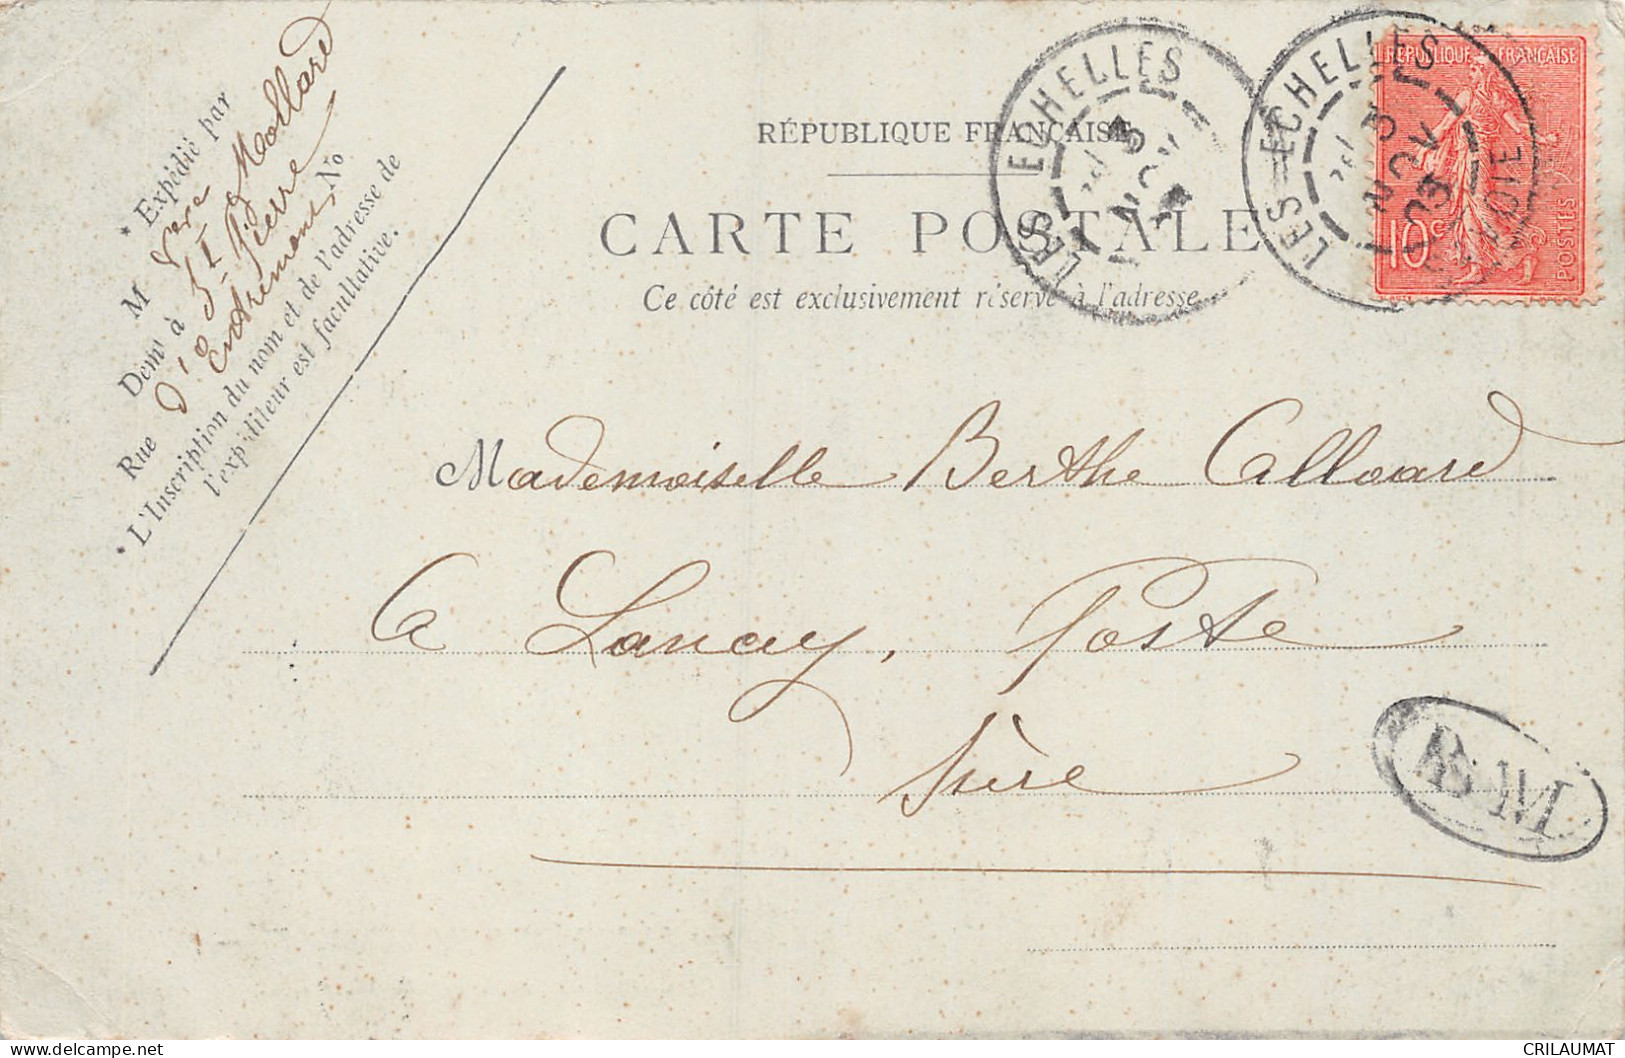 * Expédié par
M Vve Mollard
Demt à St Pierre
Rue d'Entremont, No
* L'Inscription du nom et de l'adresse de
l'expéditeur est facultative.
RÉPUBLIQUE FRANÇAISE
CARTE POSTALE
Ce côté est exclusivement réservé à l'adresse
LES ECHELLES
5 NOV
LES ECHELLES
5 NOV 03
SAVOIE
RÉPUBLIQUE FRANÇAISE
10c
POSTES
Mademoiselle Berthe Calloard
A Lancey, Poste
Isère
BM
CRILAUMAT